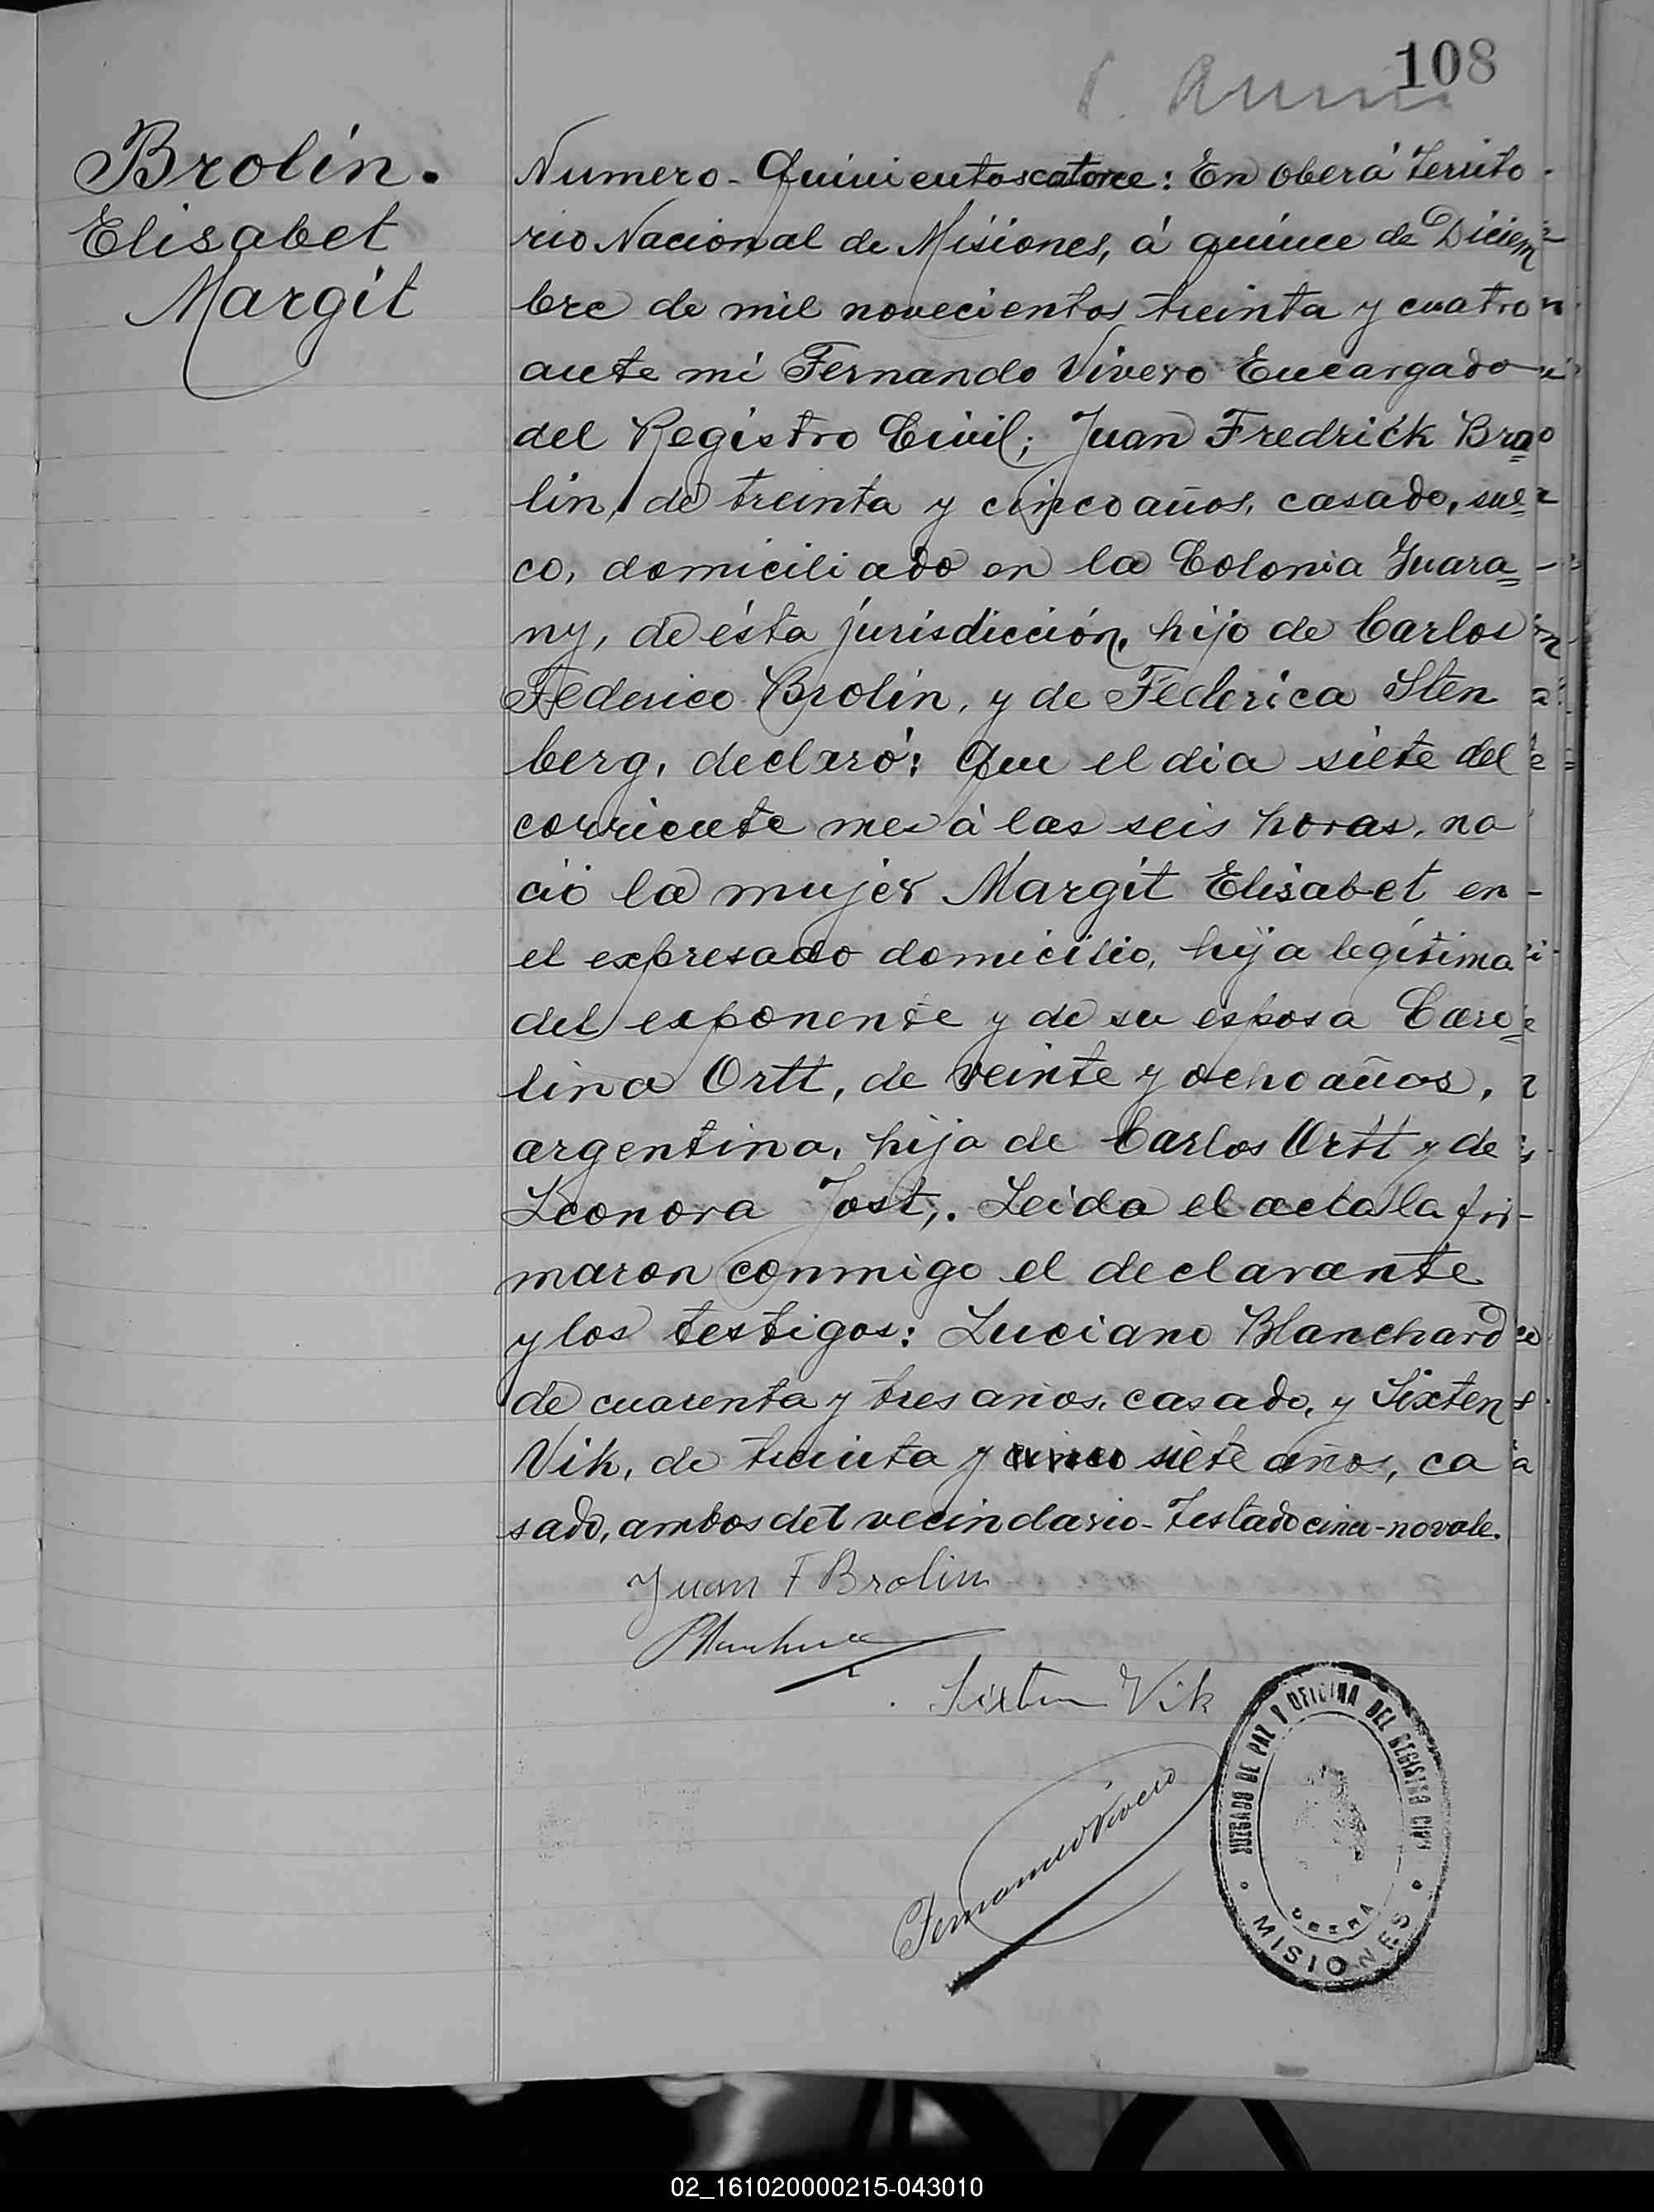 108
Brolin.
Elisabet
Margit
Numero - Quinientos catorce: En Oberá Territo
rio Nacional de Misiones, á quince de Diciem
bre de mil novecientos treinta y cuatro
ante mi Fernando Vivero Encargado
del Registro Civil; Juan Fredrick Bro=
lin, de treinta y cinco años, casado, sue=
co, domiciliado en la Colonia Guara=
ny, de ésta jurisdicción, hijo de Carlos
Federico Brolin, y de Federica Sten
berg, declaró: Que el dia siete del
corriente mes á las seis horas, na
ció la mujer Margit Elisabet en
el expresado domicilio, hija legítima
del exponente y de su esposa Caro=
lina Ortt, de veinte y ocho años,
argentina, hija de Carlos Ortt y de
Leonora Jost,. Leida el acta la fir-
maron conmigo el declarante
y los testigos: Luciano Blanchard
de cuarenta y tres años, casado, y Sixten
Vik, de treinta y cinco siete años, ca
sado, ambos del vecindario - Testado cinco - no vale.
Juan F Brolin
Sixten Vik
Fernando Vivero
JUZGADO DE PAZ Y OFICINA DEL REGISTRO CIVIL
OBERA
MISIONES
02_161020000215-043010